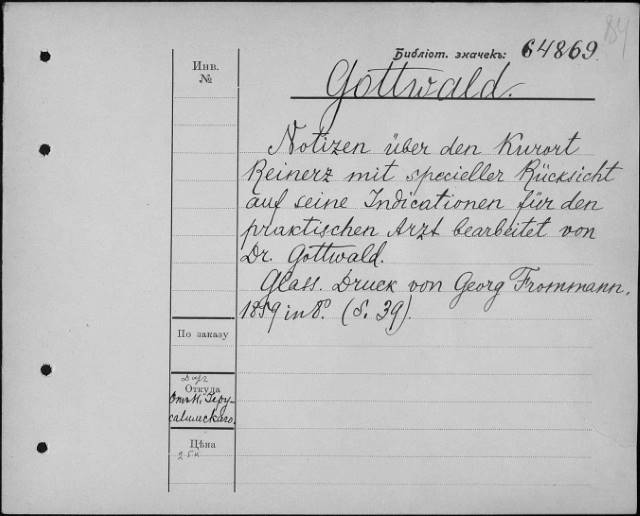 84
Библіот. значекъ: 64869.
Инв.
№
Gottwald.
Notizen über den Kurort
Reinerz mit specieller Rücksicht
auf seine Indicationen für den
praktischen Arzt bearbeitet von
Dr. Gottwald.
Glass. Druck von Georg Frommann.
1859 in 8º. (S. 39).
По заказу
Откуда
Цѣна